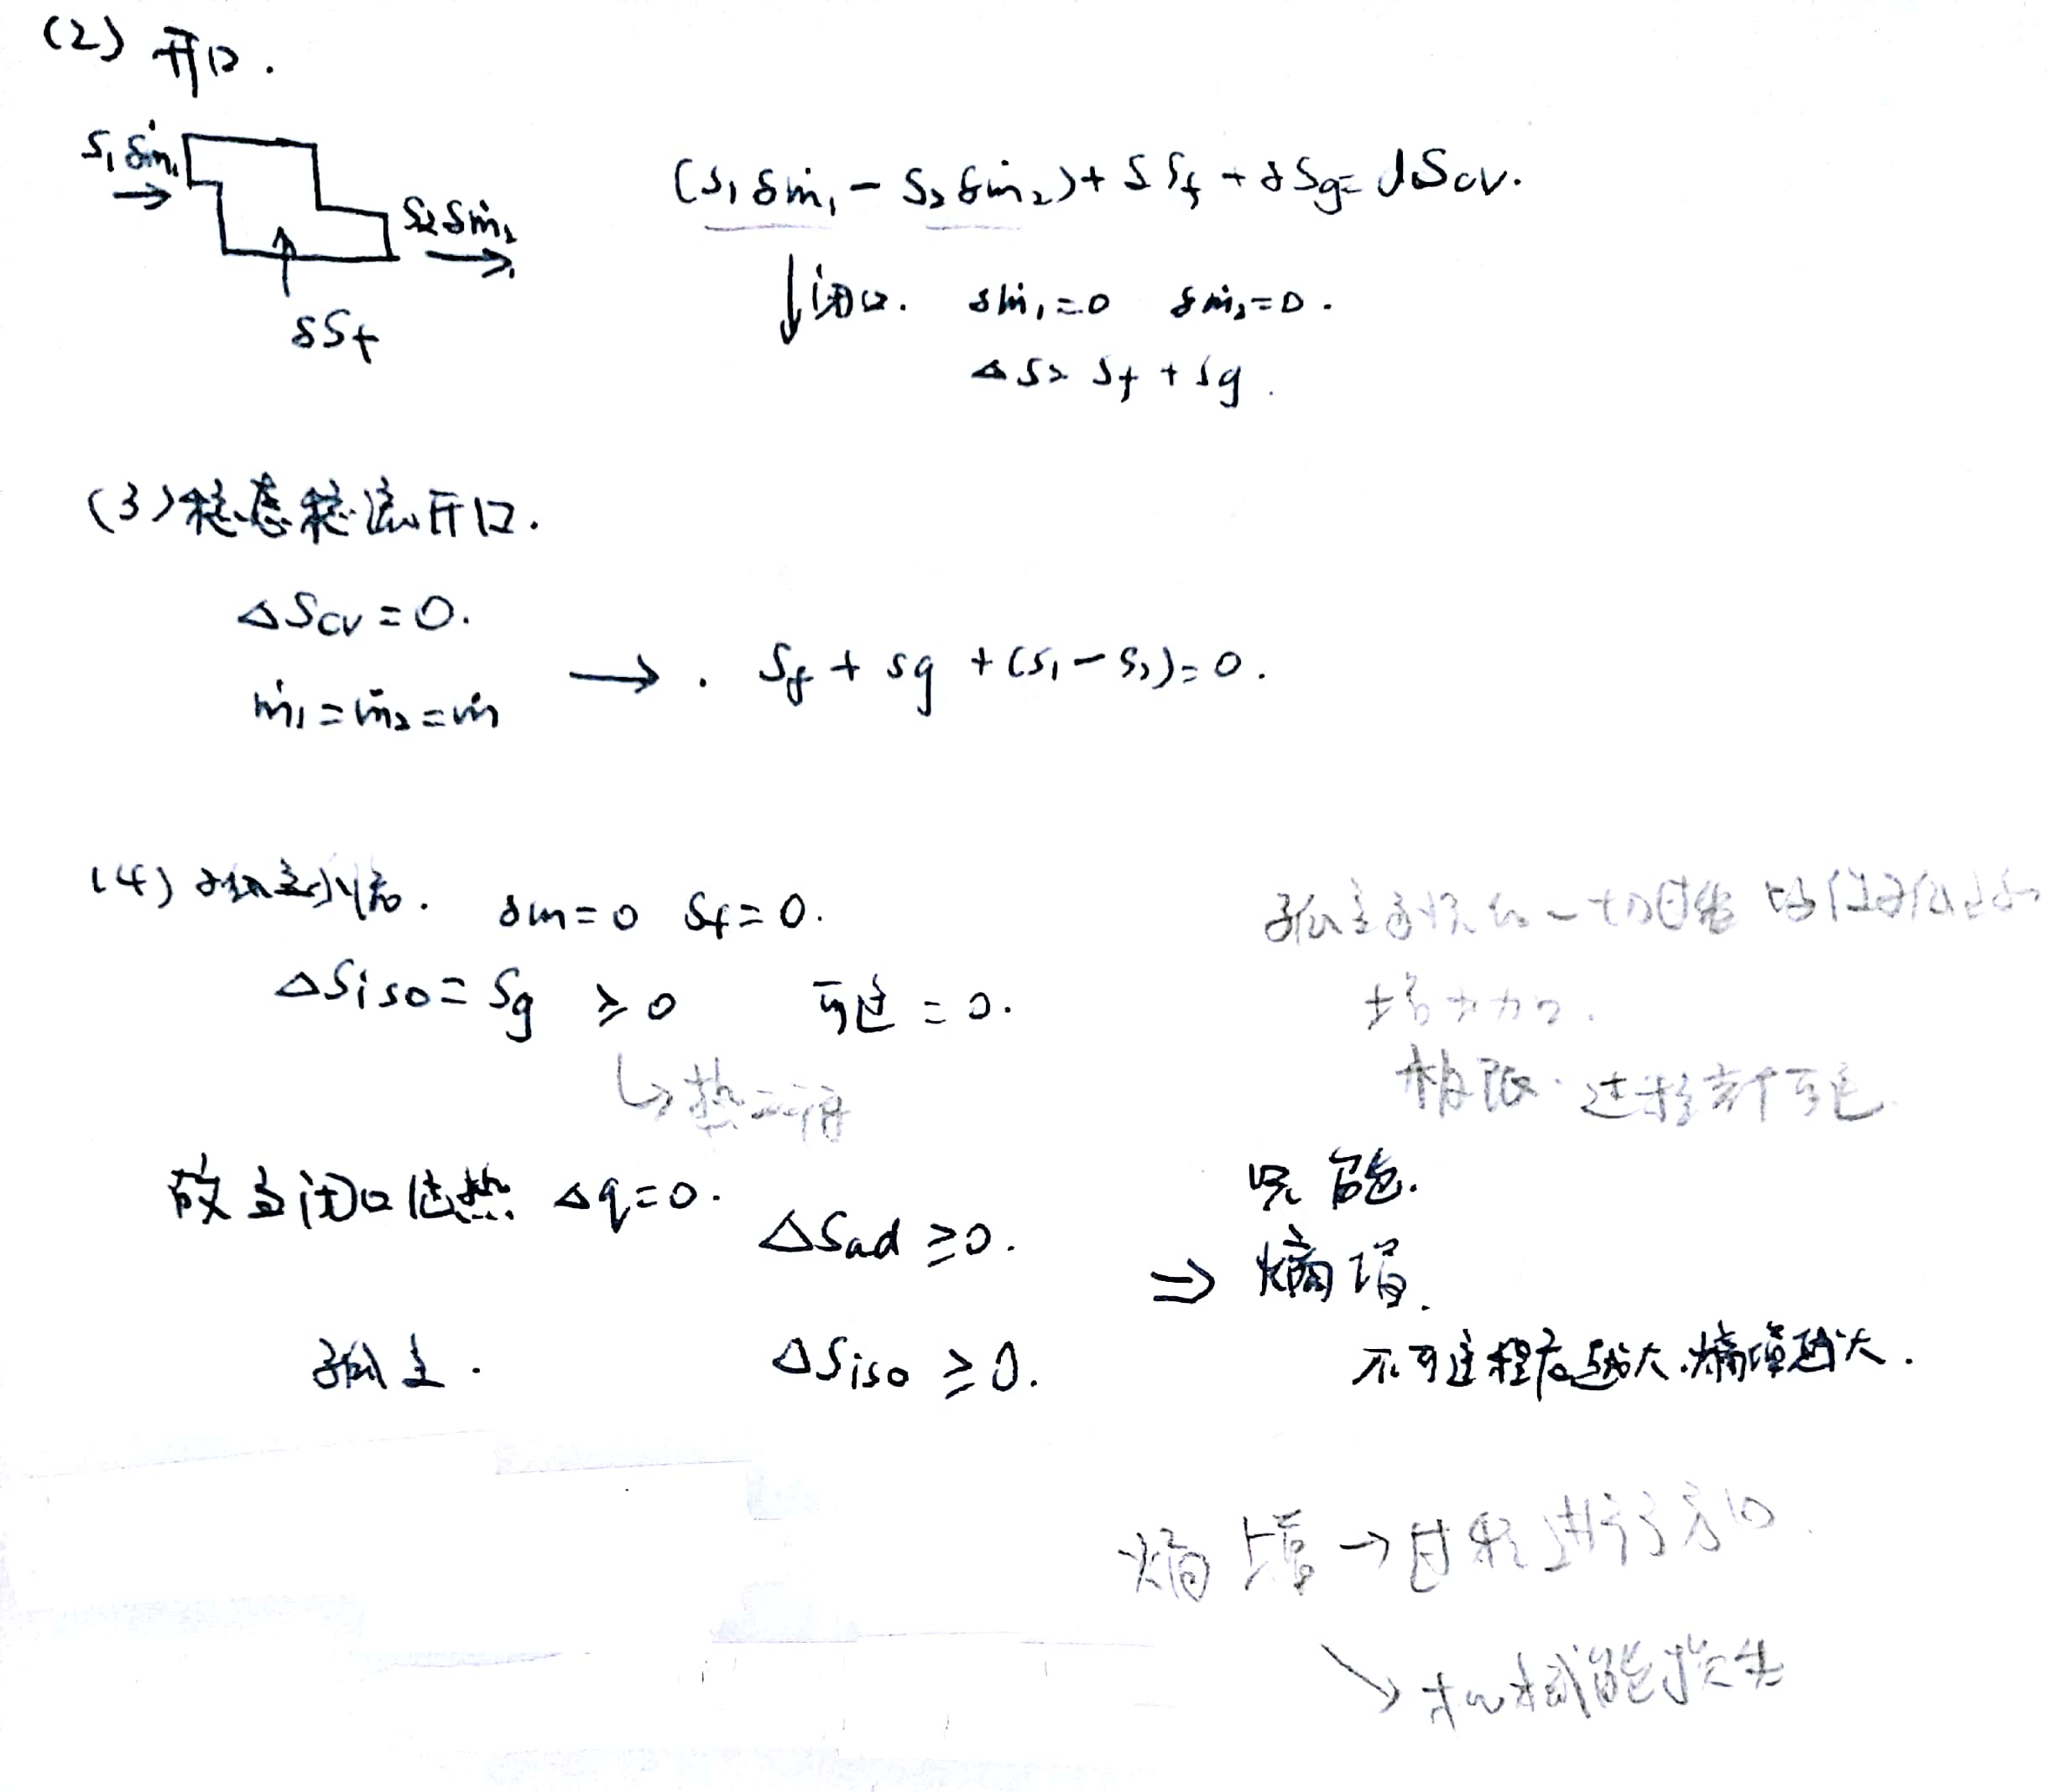 (2) 开口.
s₁δṁ₁
s₂δṁ₂
δSf
(s₁δṁ₁ - s₂δṁ₂) + δSf + δSg = dScv.
↓闭口. δṁ₁=0 δṁ₂=0.
ΔS = Sf + Sg.
(3) 稳态稳流开口.
ΔScv = 0.
ṁ₁ = ṁ₂ = ṁ
→ . Sf + sg + (s₁ - s₂) = 0.
(4) 孤立系. δm=0 Sf=0.
ΔSiso = Sg ≥ 0 可逆 = 0.
↳ 热二律
孤立系统的一切过程
增加.
极限. 过程 可逆
故当闭口绝热 Δq=0.
ΔSad ≥ 0.
孤立.
ΔSiso ≥ 0.
只能.
⇒ 熵增.
不可逆程度越大, 熵增越大.
熵增 → 过程进行方向.
↘ 机械能损失